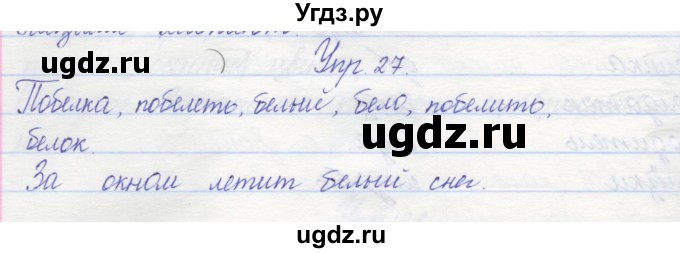 Угдз.ру
ugdz.ru ugdz.ru
Упр. 27.
Побелка, побелеть, белый, бело, побелить,
ugdz.ru
белок.
За окном летит белый снег.
ugdz.ru
ugdz.ru